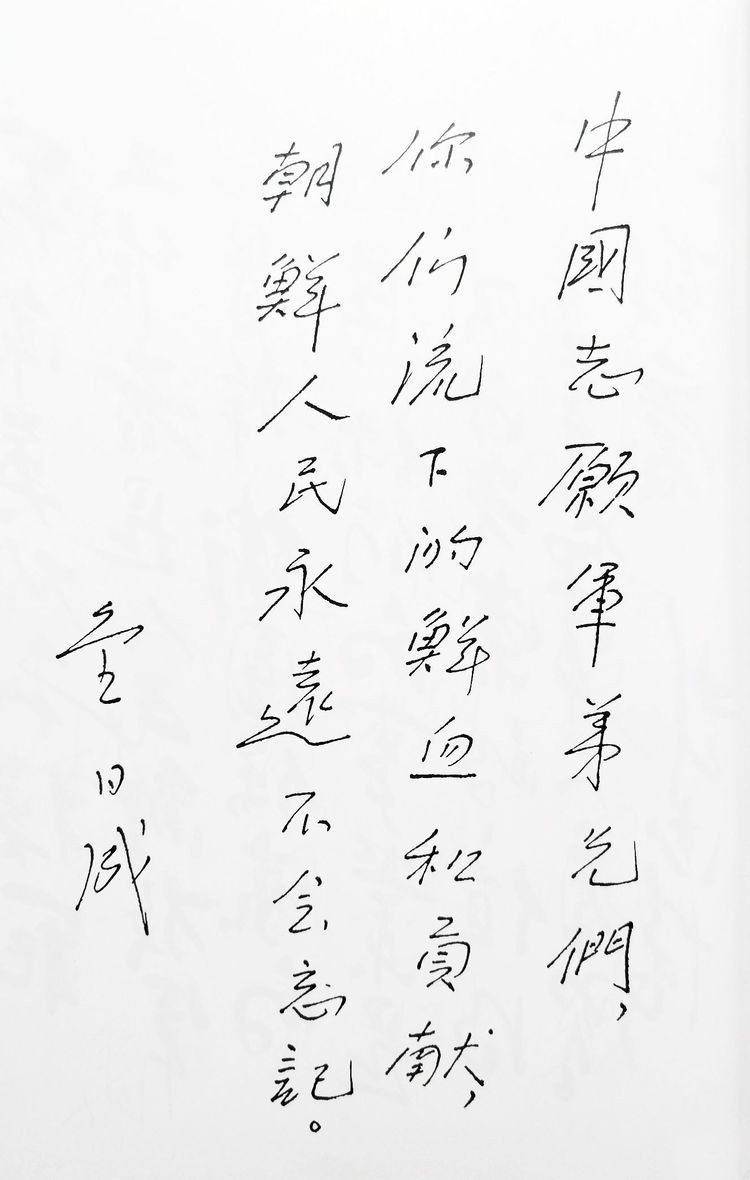 中國志願軍弟兄們，
你们流下的鮮血和貢献，
朝鮮人民永遠不会忘記。
金日成